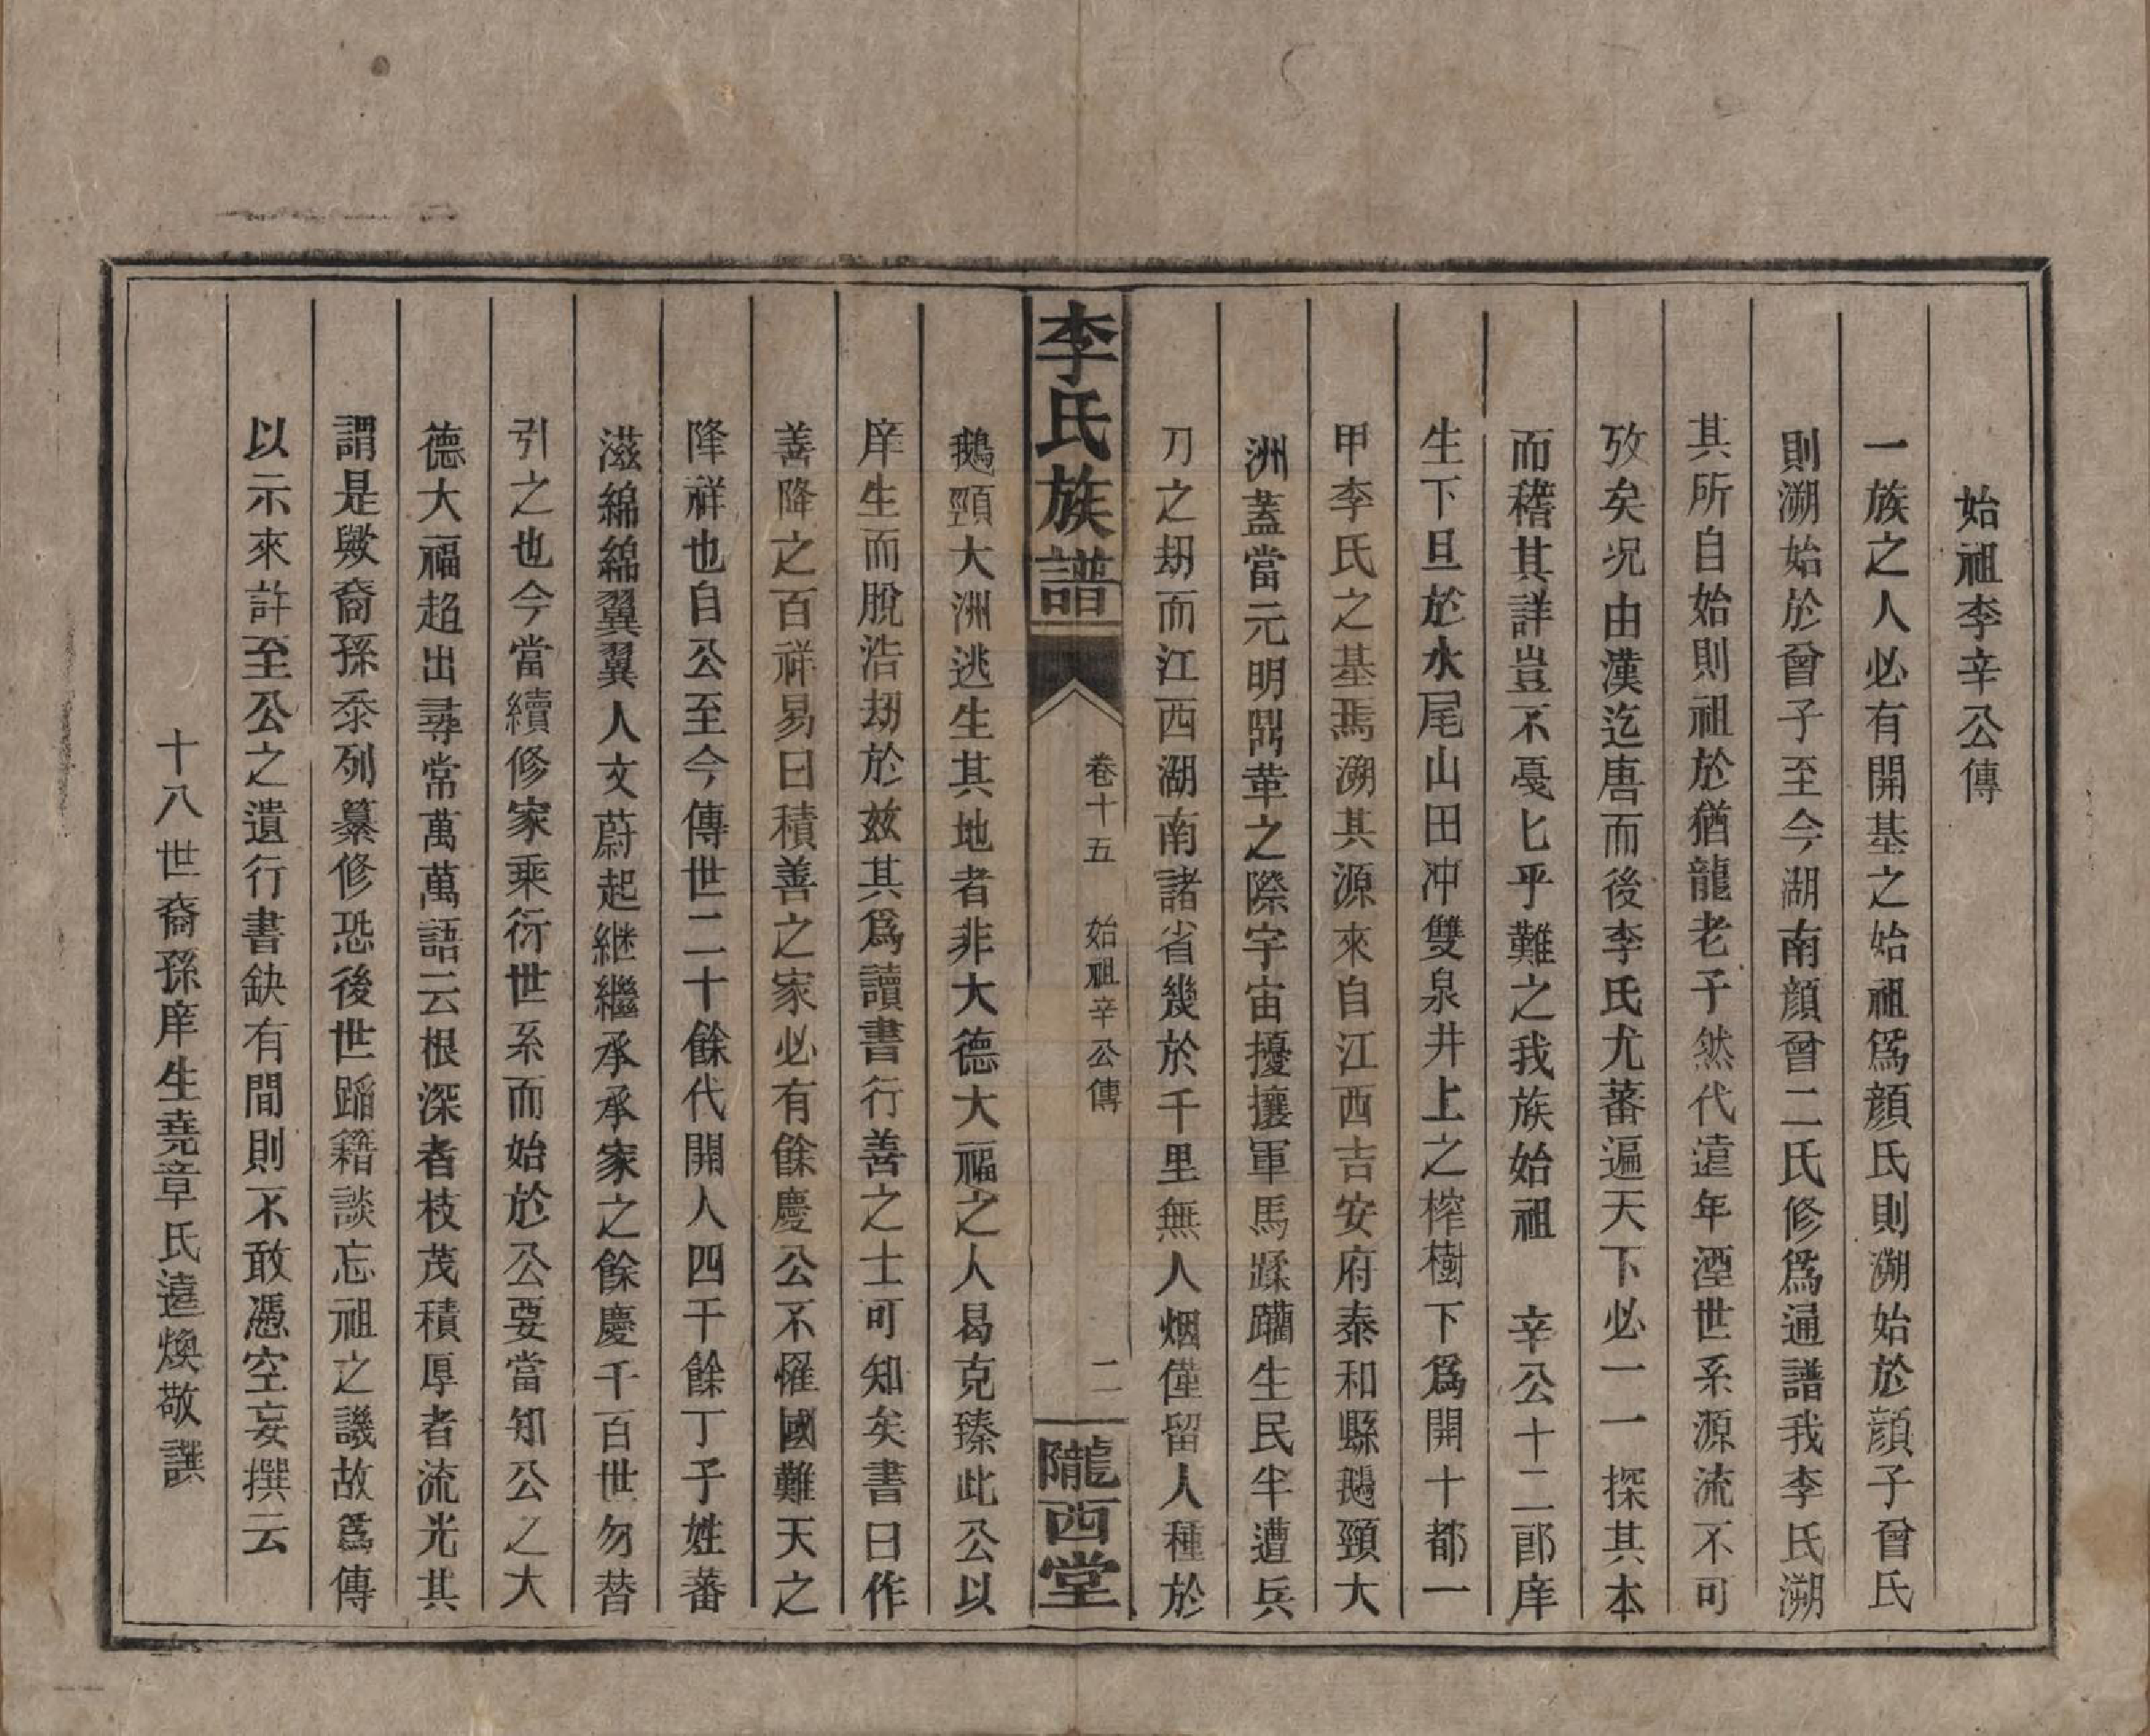 始祖李辛公傳
一族之人必有開基之始祖爲顔氏則溯始於顔子曾氏
則溯始於曾子至今湖南顔曾二氏修爲通譜我李氏溯
其所自始則祖於猶龍老子然代遠年湮世系源流不可
攷矣况由漢迄唐而後李氏尤蕃遍天下必一一探其本
而稽其詳豈不戛乚乎難之我族始祖 辛公十二郎庠
生下旦於水尾山田冲雙泉井上之榨樹下爲開十都一
甲李氏之基焉溯其源來自江西吉安府泰和縣鵝頸大
洲蓋當元明鼎革之際宇宙擾攘軍馬蹂躪生民半遭兵
刀之刼而江西湖南諸省幾於千里無人烟僅留人種於
李氏族譜 卷十五 始祖辛公傳 二 隴西堂
鵝頸大洲逃生其地者非大德大福之人曷克臻此公以
庠生而脫浩刼於兹其爲讀書行善之士可知矣書曰作
善降之百祥易曰積善之家必有餘慶公不罹國難天之
降祥也自公至今傳世二十餘代開人四千餘丁子姓蕃
滋綿綿翼翼人文蔚起継繼承承家之餘慶千百世勿替
引之也今當續修家乘衍世系而始於公要當知公之大
德大福超出尋常萬萬語云根深者枝茂積厚者流光其
謂是歟裔孫忝列纂修恐後世蹈籍談忘祖之譏故爲傳
以示來許至公之遺行書缺有間則不敢憑空妄撰云
十八世裔孫庠生堯章氏遠煥敬譔